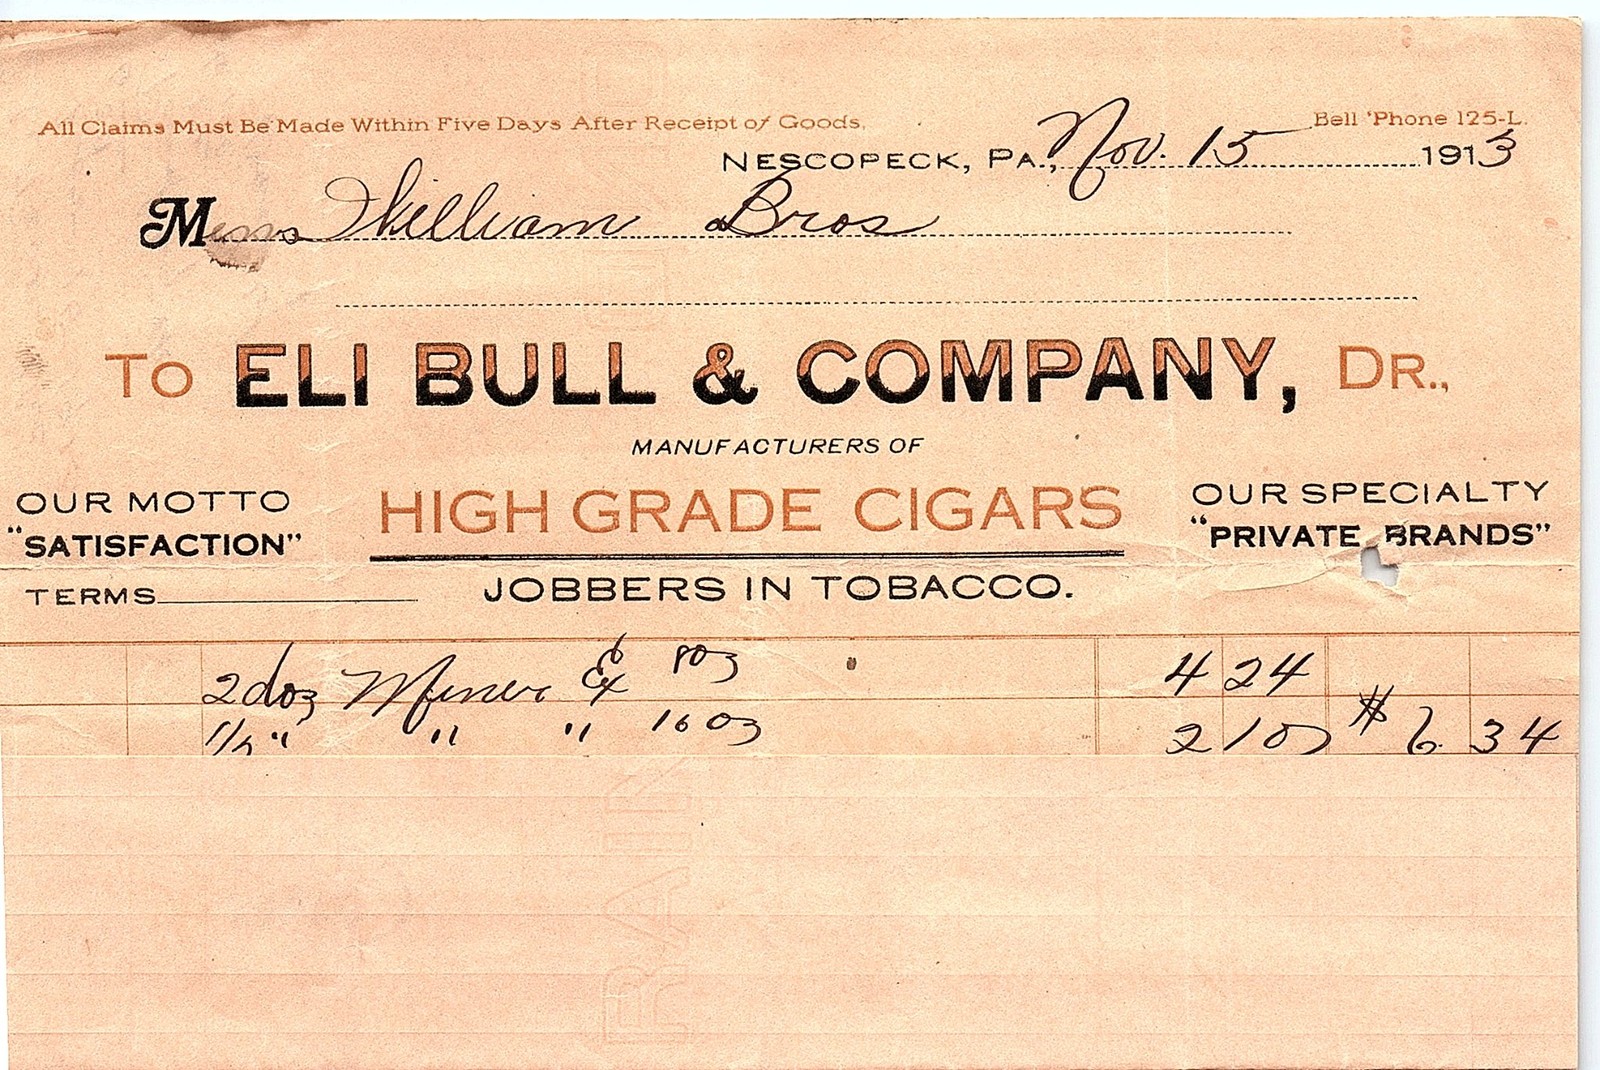 All Claims Must Be Made Within Five Days After Receipt of Goods. Bell 'Phone 125-L.
NESCOPECK, PA., Nov. 15 1913
Messrs William Bros
TO ELI BULL & COMPANY, DR.,
MANUFACTURERS OF
OUR MOTTO HIGH GRADE CIGARS OUR SPECIALTY
"SATISFACTION" "PRIVATE BRANDS"
TERMS JOBBERS IN TOBACCO.
2 doz Miner Ex 8 oz 4 24
1/2 " " " 16 oz 2 10 $ 6 34